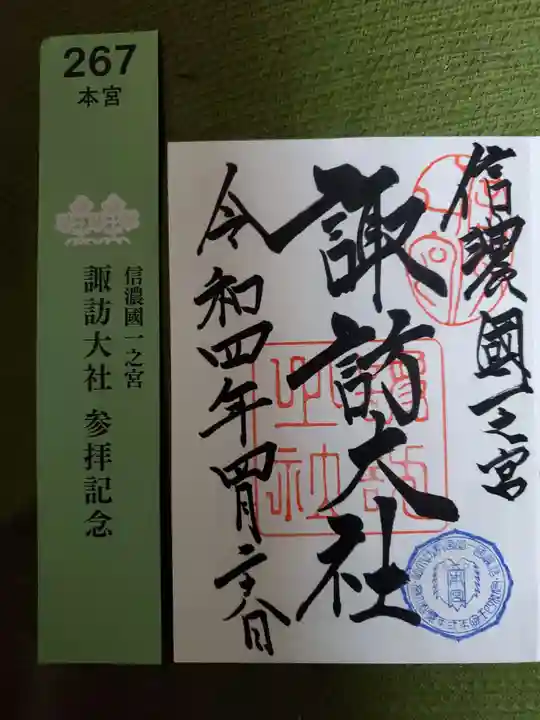 267
本宮
信濃國一之宮
諏訪大社 参拝記念
信濃國一之宮
諏訪大社
令和四年四月二十八日